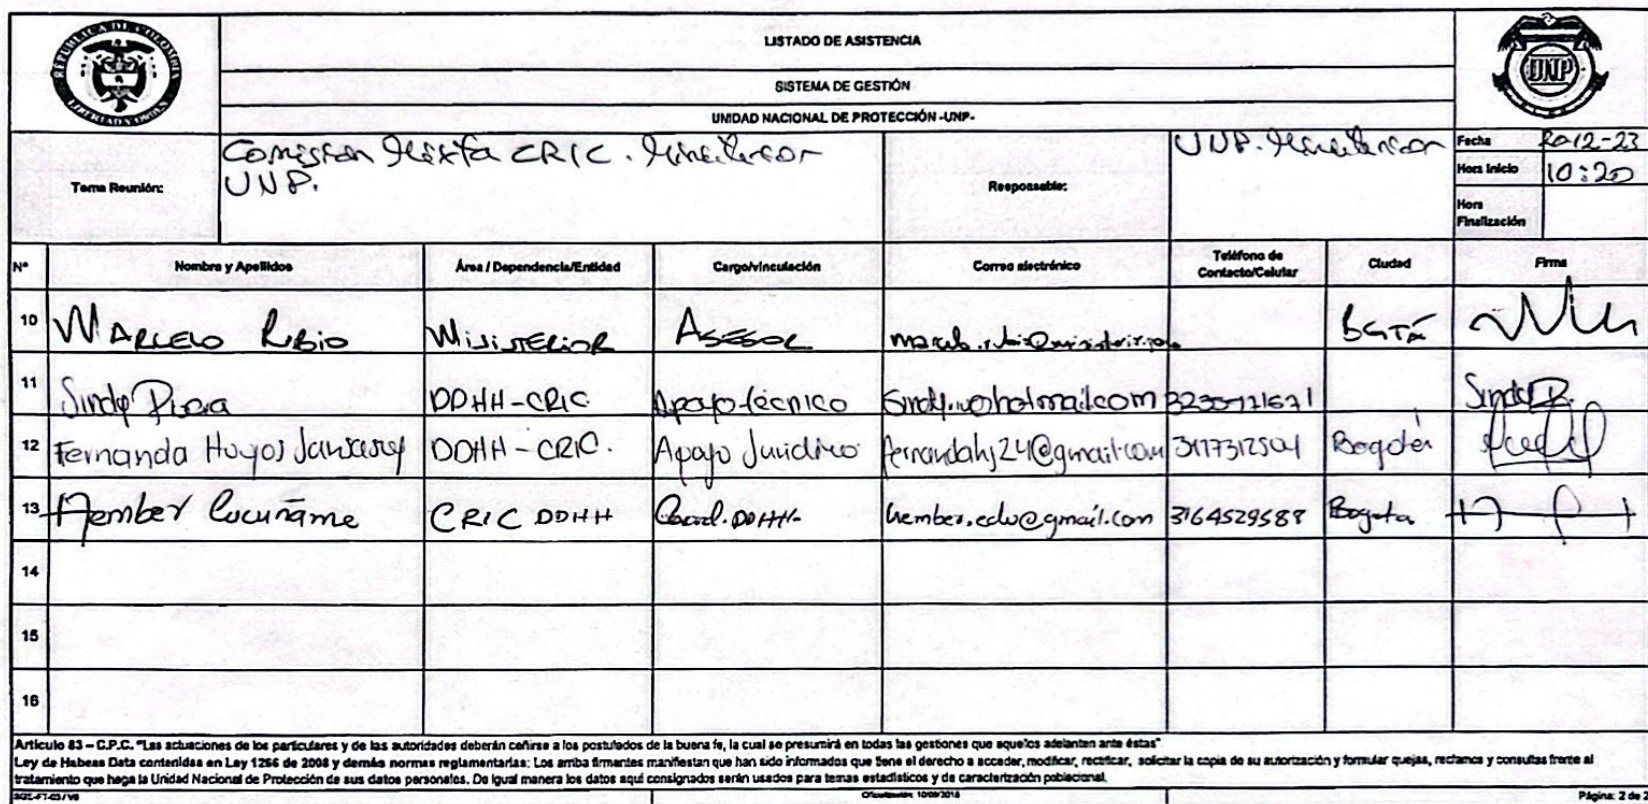 REPUBLICA DE COLOMBIA
LIBERTAD Y ORDEN
LISTADO DE ASISTENCIA
SISTEMA DE GESTIÓN
UNIDAD NACIONAL DE PROTECCIÓN -UNP-
UNP
Tema Reunión:
Comisión Mixta CRIC. Mininterior
UNP.
Responsable:
UNP. Mininterior
Fecha 2012-23
Hora Inicio 10:20
Hora Finalización
N° Nombre y Apellidos Área / Dependencia/Entidad Cargo/vinculación Correo electrónico Teléfono de Contacto/Celular Ciudad Firma
10 MARCELO RUBIO MININTERIOR ASESOR
11 Sindy DDHH-CRIC Apoyo técnico
12 Fernanda Hoyos DDHH-CRIC. Apoyo Juridico fernandahj24@gmail.com Bogotá
13 Hember Cucuñame CRIC DDHH Coord. DDHH- hember.edu@gmail.com 3164529588 Bogota
14
15
16
Artículo 83 – C.P.C. "Las actuaciones de los particulares y de las autoridades deberán ceñirse a los postulados de la buena fe, la cual se presumirá en todas las gestiones que aquellos adelanten ante éstas"
Ley de Habeas Data contenidas en Ley 1266 de 2008 y demás normas reglamentarias: Los arriba firmantes manifiestan que han sido informados que tiene el derecho a acceder, modificar, rectificar, solicitar la copia de su autorización y formular quejas, reclamos y consultas frente al
tratamiento que haga la Unidad Nacional de Protección de sus datos personales. De igual manera los datos aquí consignados serán usados para temas estadísticos y de caracterización poblacional.
Oficialización: 10/09/2018
Página: 2 de 2